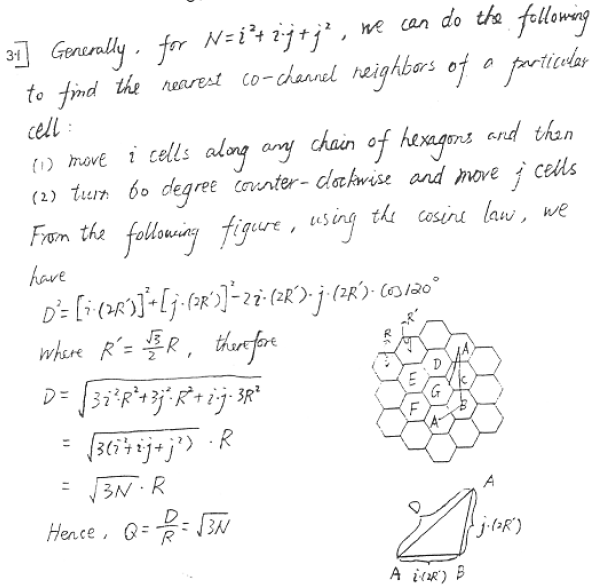 3.1] Generally, for N=i²+i·j+j², we can do the following
to find the nearest co-channel neighbors of a particular
cell:
(1) move i cells along any chain of hexagons and then
(2) turn 60 degree counter-clockwise and move j cells
From the following figure, using the cosine law, we
have
D²=[i·(2R')]²+[j·(2R')]²-2i·(2R')·j·(2R')·cos120°
where R'=√3/2 R, therefore
D=√(3i²·R²+3j²·R²+i·j·3R²)
=√(3(i²+i·j+j²))·R
=√(3N)·R
Hence, Q=D/R=√(3N)
R R'
A
D
E C
G
F B
A
A
D j·(2R')
A i·(2R') B